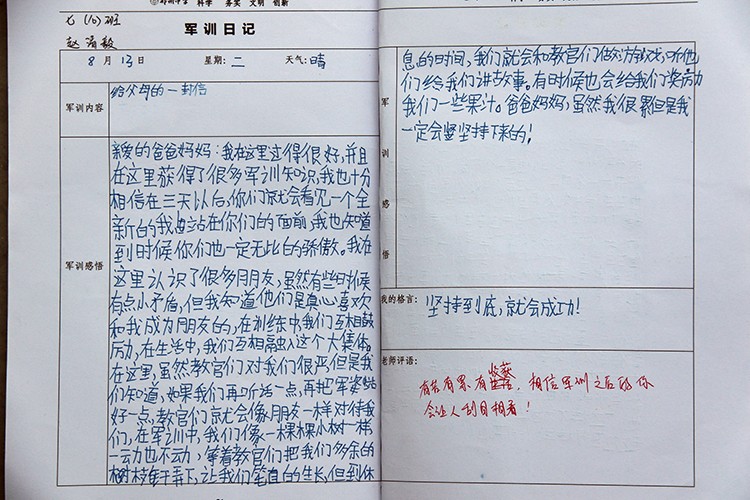 科学 务实 文明 创新
七（10）班
军训日记
赵
8月13日 星期：二 天气：晴
军训内容
给父母的一封信
军训感悟
亲爱的爸爸妈妈：我在这里过得很好，并且
在这里获得了很多军训知识，我也十分
相信在三天以后，你们就会看见一个全
新的我站在你们的面前，我也知道
到时候你们也一定无比的骄傲。我在
这里认识了很多朋友，虽然有些时候
有点小矛盾，但我知道他们是真心喜欢
和我成为朋友的，在训练中我们互相鼓
励，在生活中，我们互相融入这个大集体。
在这里，虽然教官们对我们很严，但是我
们知道，如果我们再听话一点，再把军姿站
好一点，教官们就会像朋友一样对待我
们，在军训中，我们像一棵棵小树一样
一动也不动，等着教官们把我们多余的
树枝 下，让我们笔直的生长，但到休
息的时间，我们就会和教官们做游戏，听他
们给我们讲故事。有时候也会给我们奖励
我们一些果汁。爸爸妈妈，虽然我很累但是我
一定会坚持下来的！
军
训
感
悟
我的格言：
坚持到底，就会成功！
老师评语：
有苦有累有收获，相信军训之后的你
会让人刮目相看！